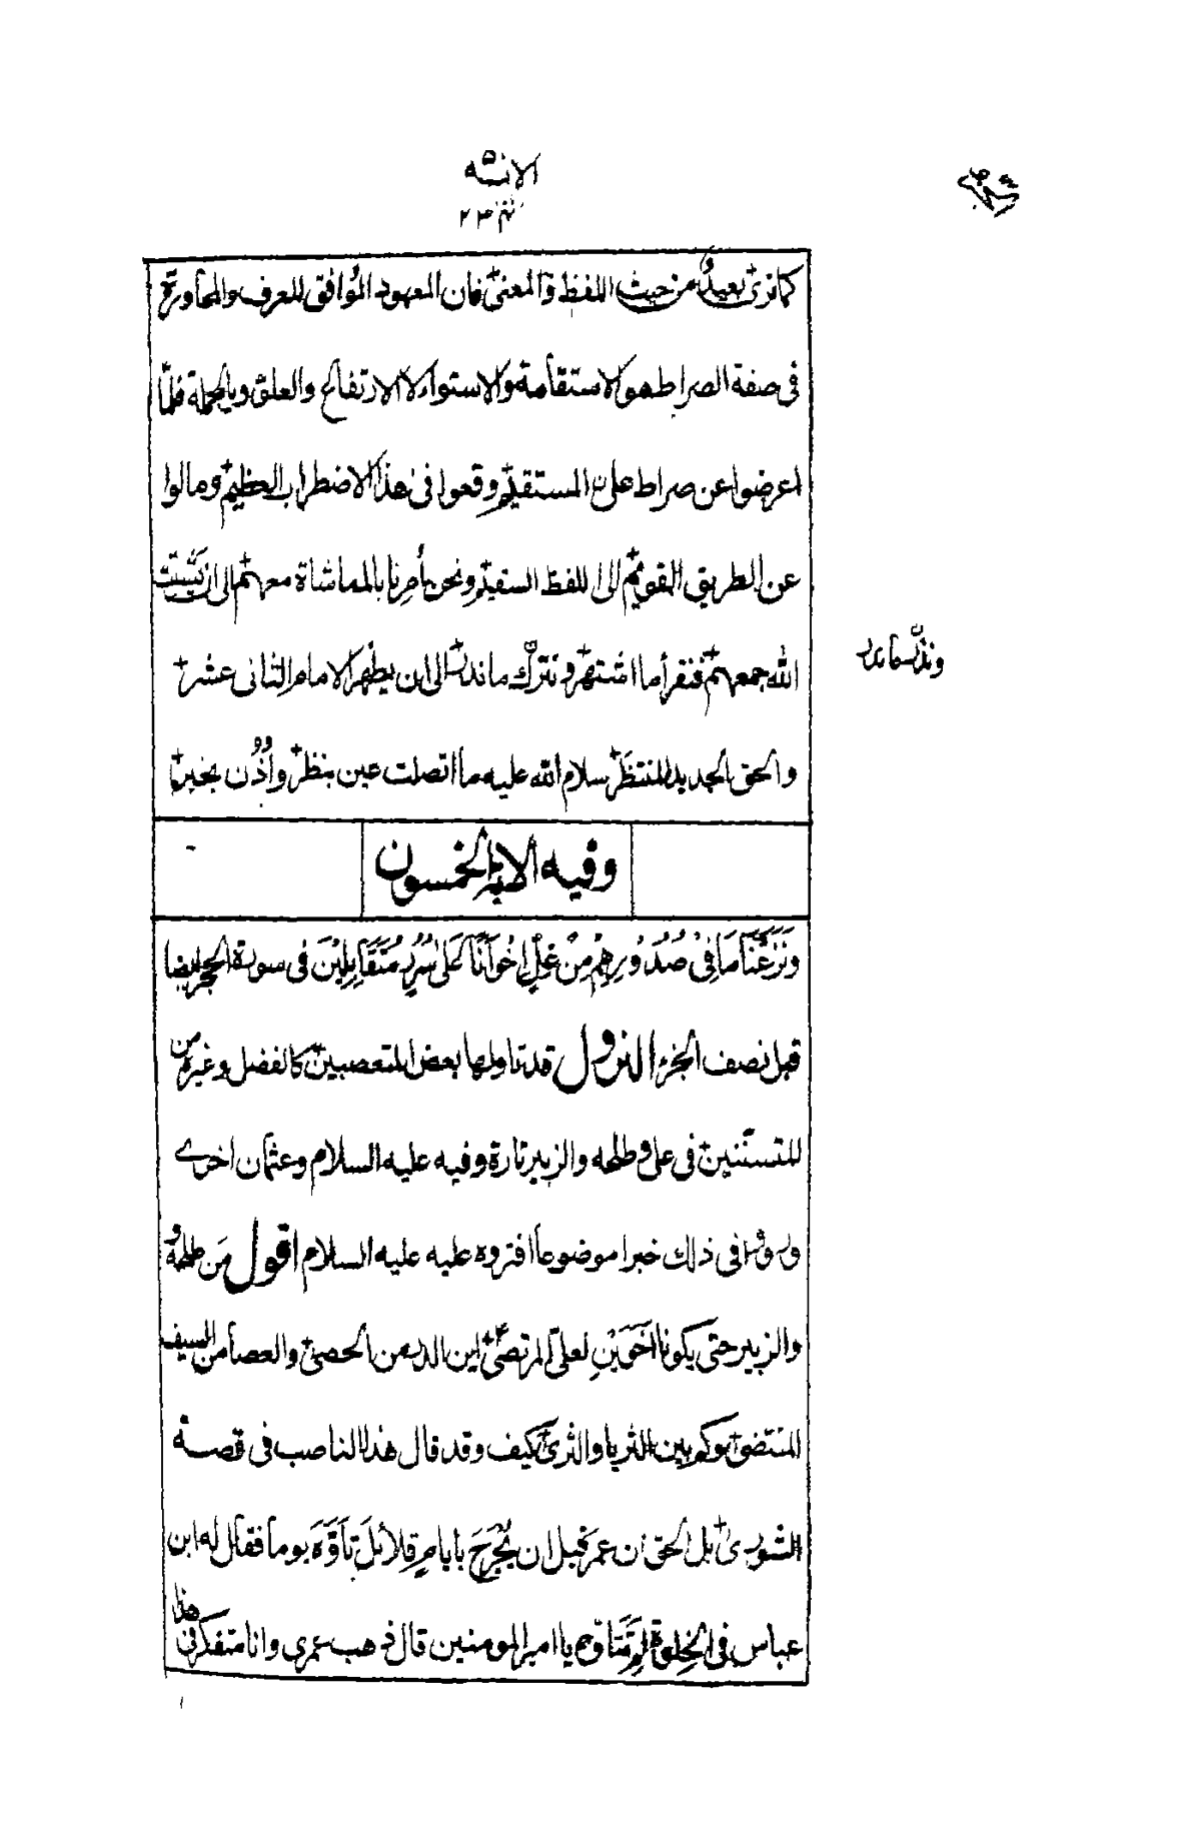 الآیه
۲۳
كما ترىٰ بعيدٌ من حيث اللفظ والمعنىٰ فان المعهود الموافق للعرف والمحاورة
فى صفة الصراط هو الاستقامة والاستواء لا الارتفاع والعلو وبالجملة فلمّا
اعرضوا عن صراط علىٍّ المستقيم وقعوا فى هذا الاضطراب العظيم ومالوا
عن الطريق القويم الى اللفظ السقيم ونحن بأمرنا بالمماشاة معهم الى ان يشتت
الله جمعهم فنقرأ ما اشتهر ونترك ما ندر الى ان يظهر الامام الثانى عشر
والحق الجديد المنتظَر سلام الله عليه ما اتصلت عين بنظر واُذُن بخبر
ونذر ما ندر
وفيه الآية الخمسون
وَنَزَعْنَا مَا فِىْ صُدُوْرِهِمْ مِنْ غِلٍّ اِخْوَانًا عَلىٰ سُرُرٍ مُتَقَابِلِيْنَ فى سورة الحجر ايضا
قبل نصف الجزء النزول قد تاولها بعض المتعصبين كالفضل وغيره من
المتسننين فى على وطلحه والزبير تارة وفيه عليه السلام وعثمان اخرى
ورووا فى ذلك خبرا موضوعاً افتروه عليه عليه السلام اقول مَن طلحة
والزبير حتى يكونا اَخَوَيْنِ لعلىّ المرتضىٰ اين الدر من الحصىٰ والعصا من السيف
المنتضىٰ وكم بين الثريا والثرىٰ كيف وقد قال هذا الناصب فى قصة
الشورىٰ بل الحق ان عمر قبل ان يُجْرَحَ بأيامٍ قلائل تأَوَّهَ يوما فقال له ابن
عباس فى الخلوة لِمَ تَتَأوَّه يا امير المومنين قال ذهب عمرى وانا متفكر فى هذا